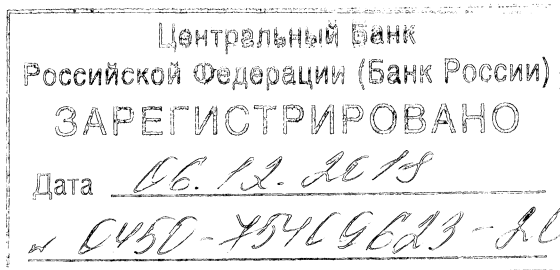 Центральный Банк
Российской Федерации (Банк России)
ЗАРЕГИСТРИРОВАНО
Дата 06.12.2018